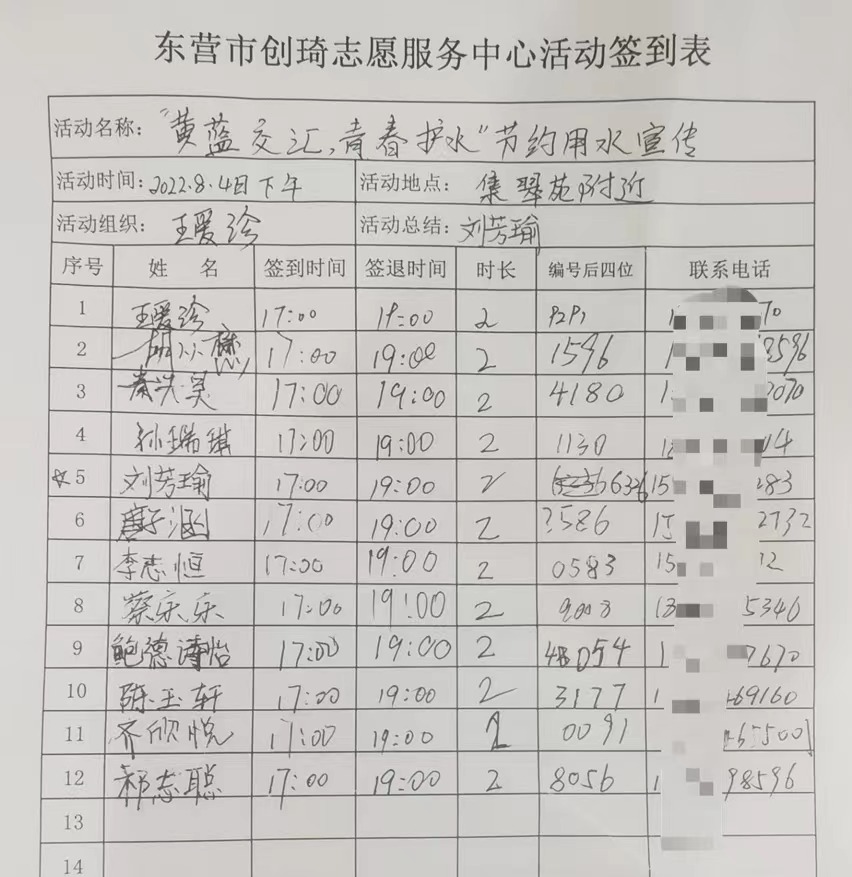 东营市创琦志愿服务中心活动签到表
活动名称："黄蓝交汇，青春护水"节约用水宣传
活动时间：2022.8.4日下午 活动地点：集翠苑附近
活动组织：王爱珍 活动总结：刘芳瑜
序号 姓 名 签到时间 签退时间 时长 编号后四位 联系电话
1 王爱珍 17:00 19:00 2 70
2 17:00 19:00 2 1596 8596
3 17:00 19:00 2 4180 2070
4 孙瑞琪 17:00 19:00 2 1130 04
☆5 刘芳瑜 17:00 19:00 2 6326 15 283
6 唐子涵 17:00 19:00 2 3586 15 2732
7 李志恒 17:00 19:00 2 0583 15 12
8 蔡乐乐 17:00 19:00 2 9008 13 5340
9 鲍德诗怡 17:00 19:00 2 4054 1 7670
10 陈玉轩 17:00 19:00 2 3177 1 69160
11 齐欣悦 17:00 19:00 2 0091 65500
12 郝志聪 17:00 19:00 2 8056 1 98596
13
14